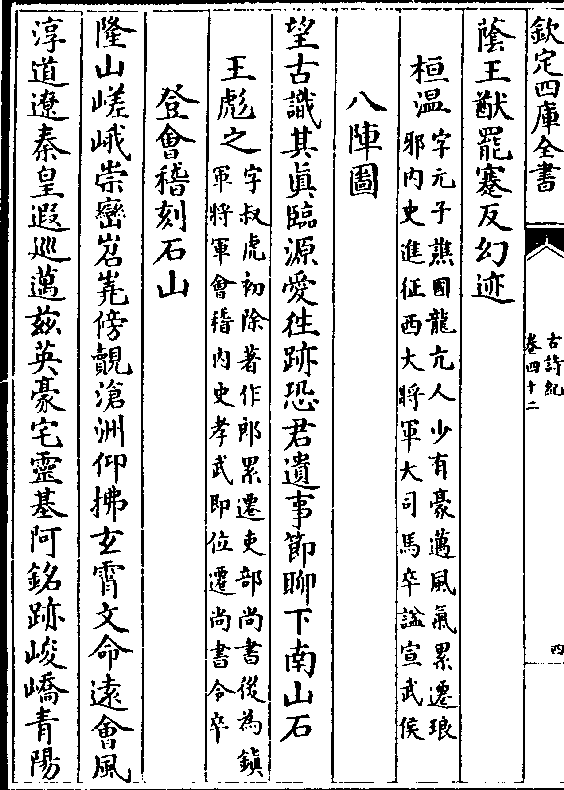 欽定四庫全書
古詩紀
卷四十二
四
蔭王猷罷蹇反幻迹
桓温字元子譙國龍亢人少有豪邁風氣累遷琅
邪内史進征西大將軍大司馬卒諡宣武侯
八陣圖
望古識其真臨源愛往跡恐君遺事節聊下南山石
王彪之字叔虎初除著作郎累遷吏部尚書後為鎮
軍將軍會稽内史孝武即位遷尚書令卒
登會稽刻石山
隆山嵯峨崇巒岧嶤傍覿滄洲仰拂玄霄文命遠會風
淳道遼秦皇遐巡邁兹英豪宅靈基阿銘跡峻嶠青陽